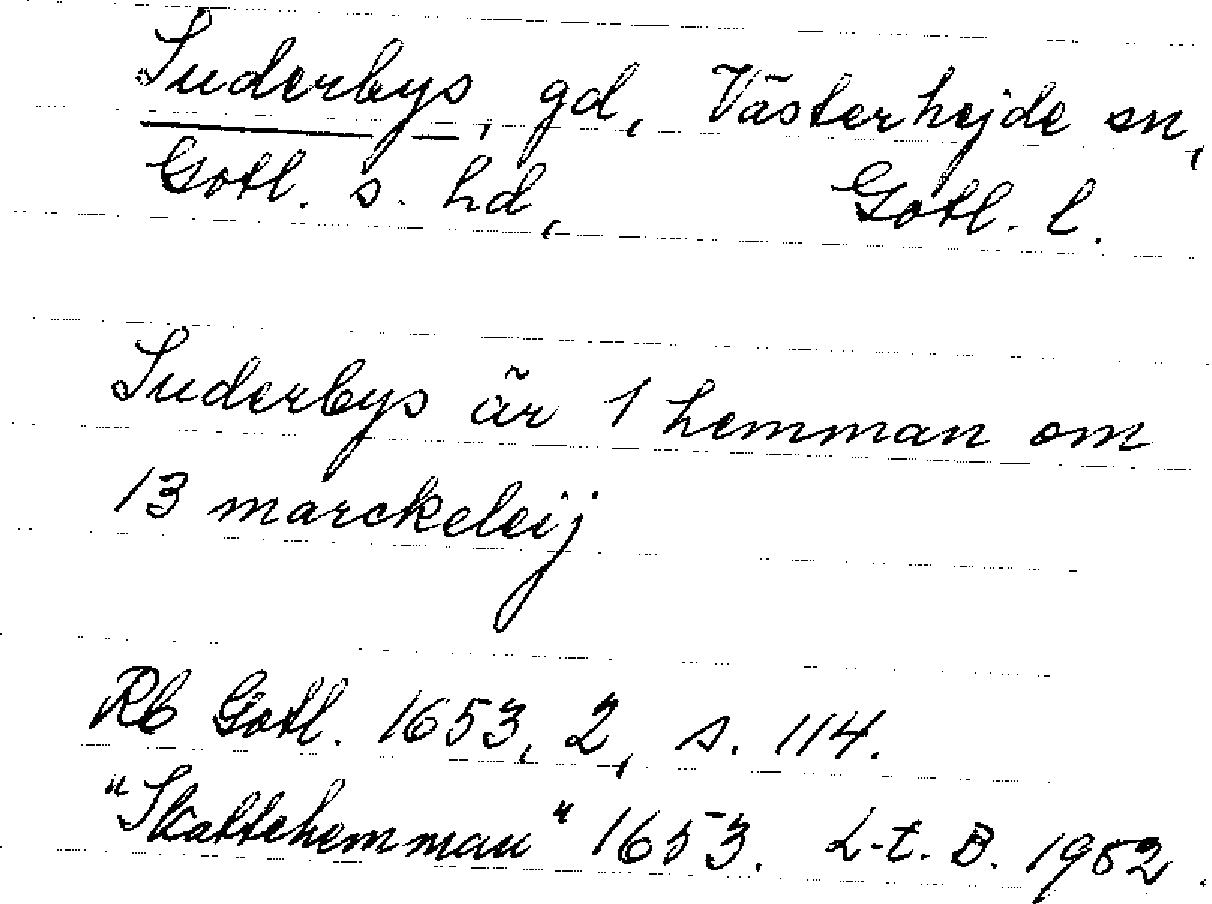 Suderbys, gd, Västerhejde sn,
Gotl. s. hd, Gotl. l.
Suderbys är 1 hemman om
13 marckeleij
Rb Gotl. 1653, 2, s. 114.
"Skattehemman" 1653. L-t. B. 1952.